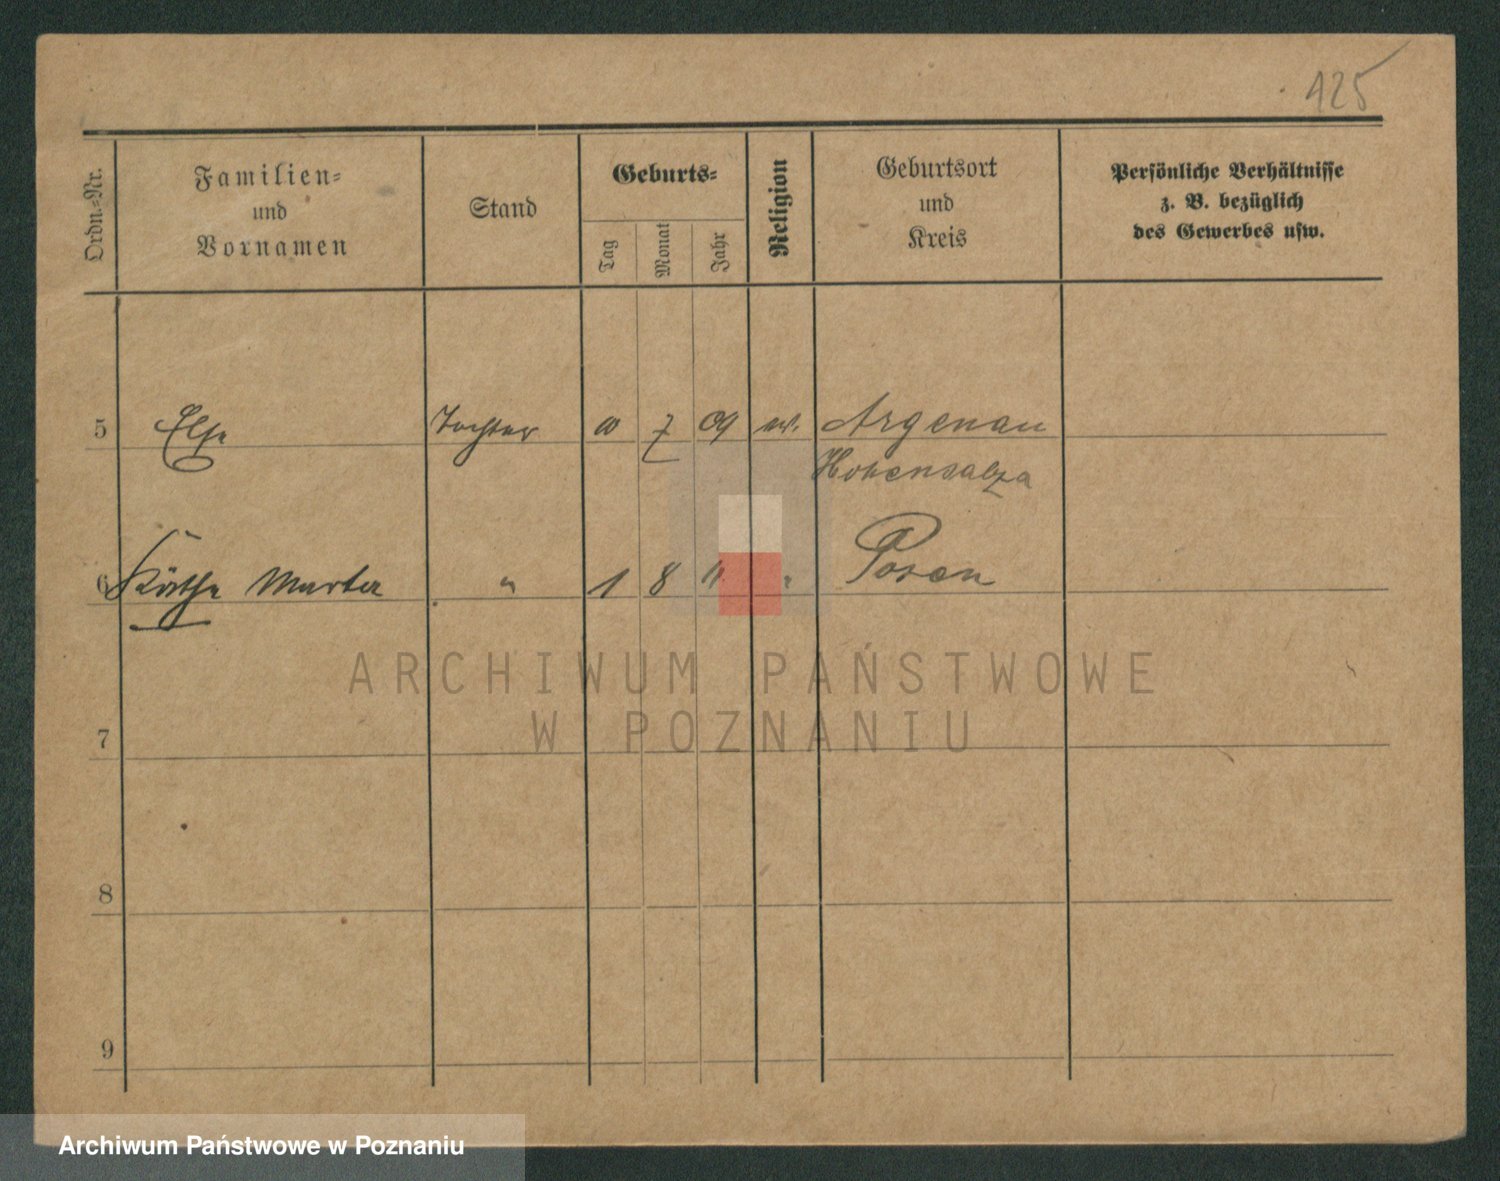 125
Ordn.-Nr.
Familien-
und
Vornamen
Stand
Geburts-
Tag
Monat
Jahr
Religion
Geburtsort
und
Kreis
Persönliche Verhältnisse
z. B. bezüglich
des Gewerbes usw.
5 Else Tochter 10 7 09 ev. Argenau
Hohensalza
6 Käthe Martha " 1 8 11 " Posen
7
8
9
ARCHIWUM PAŃSTWOWE
W POZNANIU
Archiwum Państwowe w Poznaniu